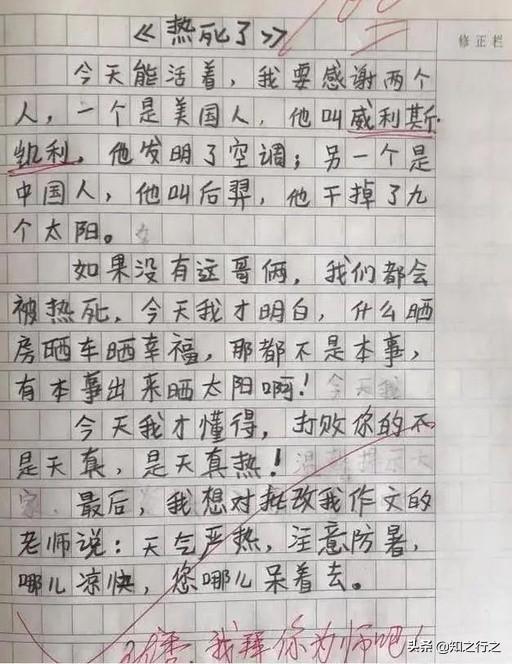 《热死了》
修正栏
今天能活着，我要感谢两个
人，一个是美国人，他叫威利斯
凯利，他发明了空调；另一个是
中国人，他叫后羿，他干掉了九
个太阳。
如果没有这哥俩，我们都会
被热死，今天我才明白，什么晒
房晒车晒幸福，那都不是本事，
有本事出来晒太阳啊！今天我
今天我才懂得，打败你的不
是天真，是天真热！温馨提示大
家，最后，我想对批改我作文的
老师说：天气严热，注意防暑，
哪儿凉快，您哪儿呆着去。
我拜你为师吧！
头条 @知之行之